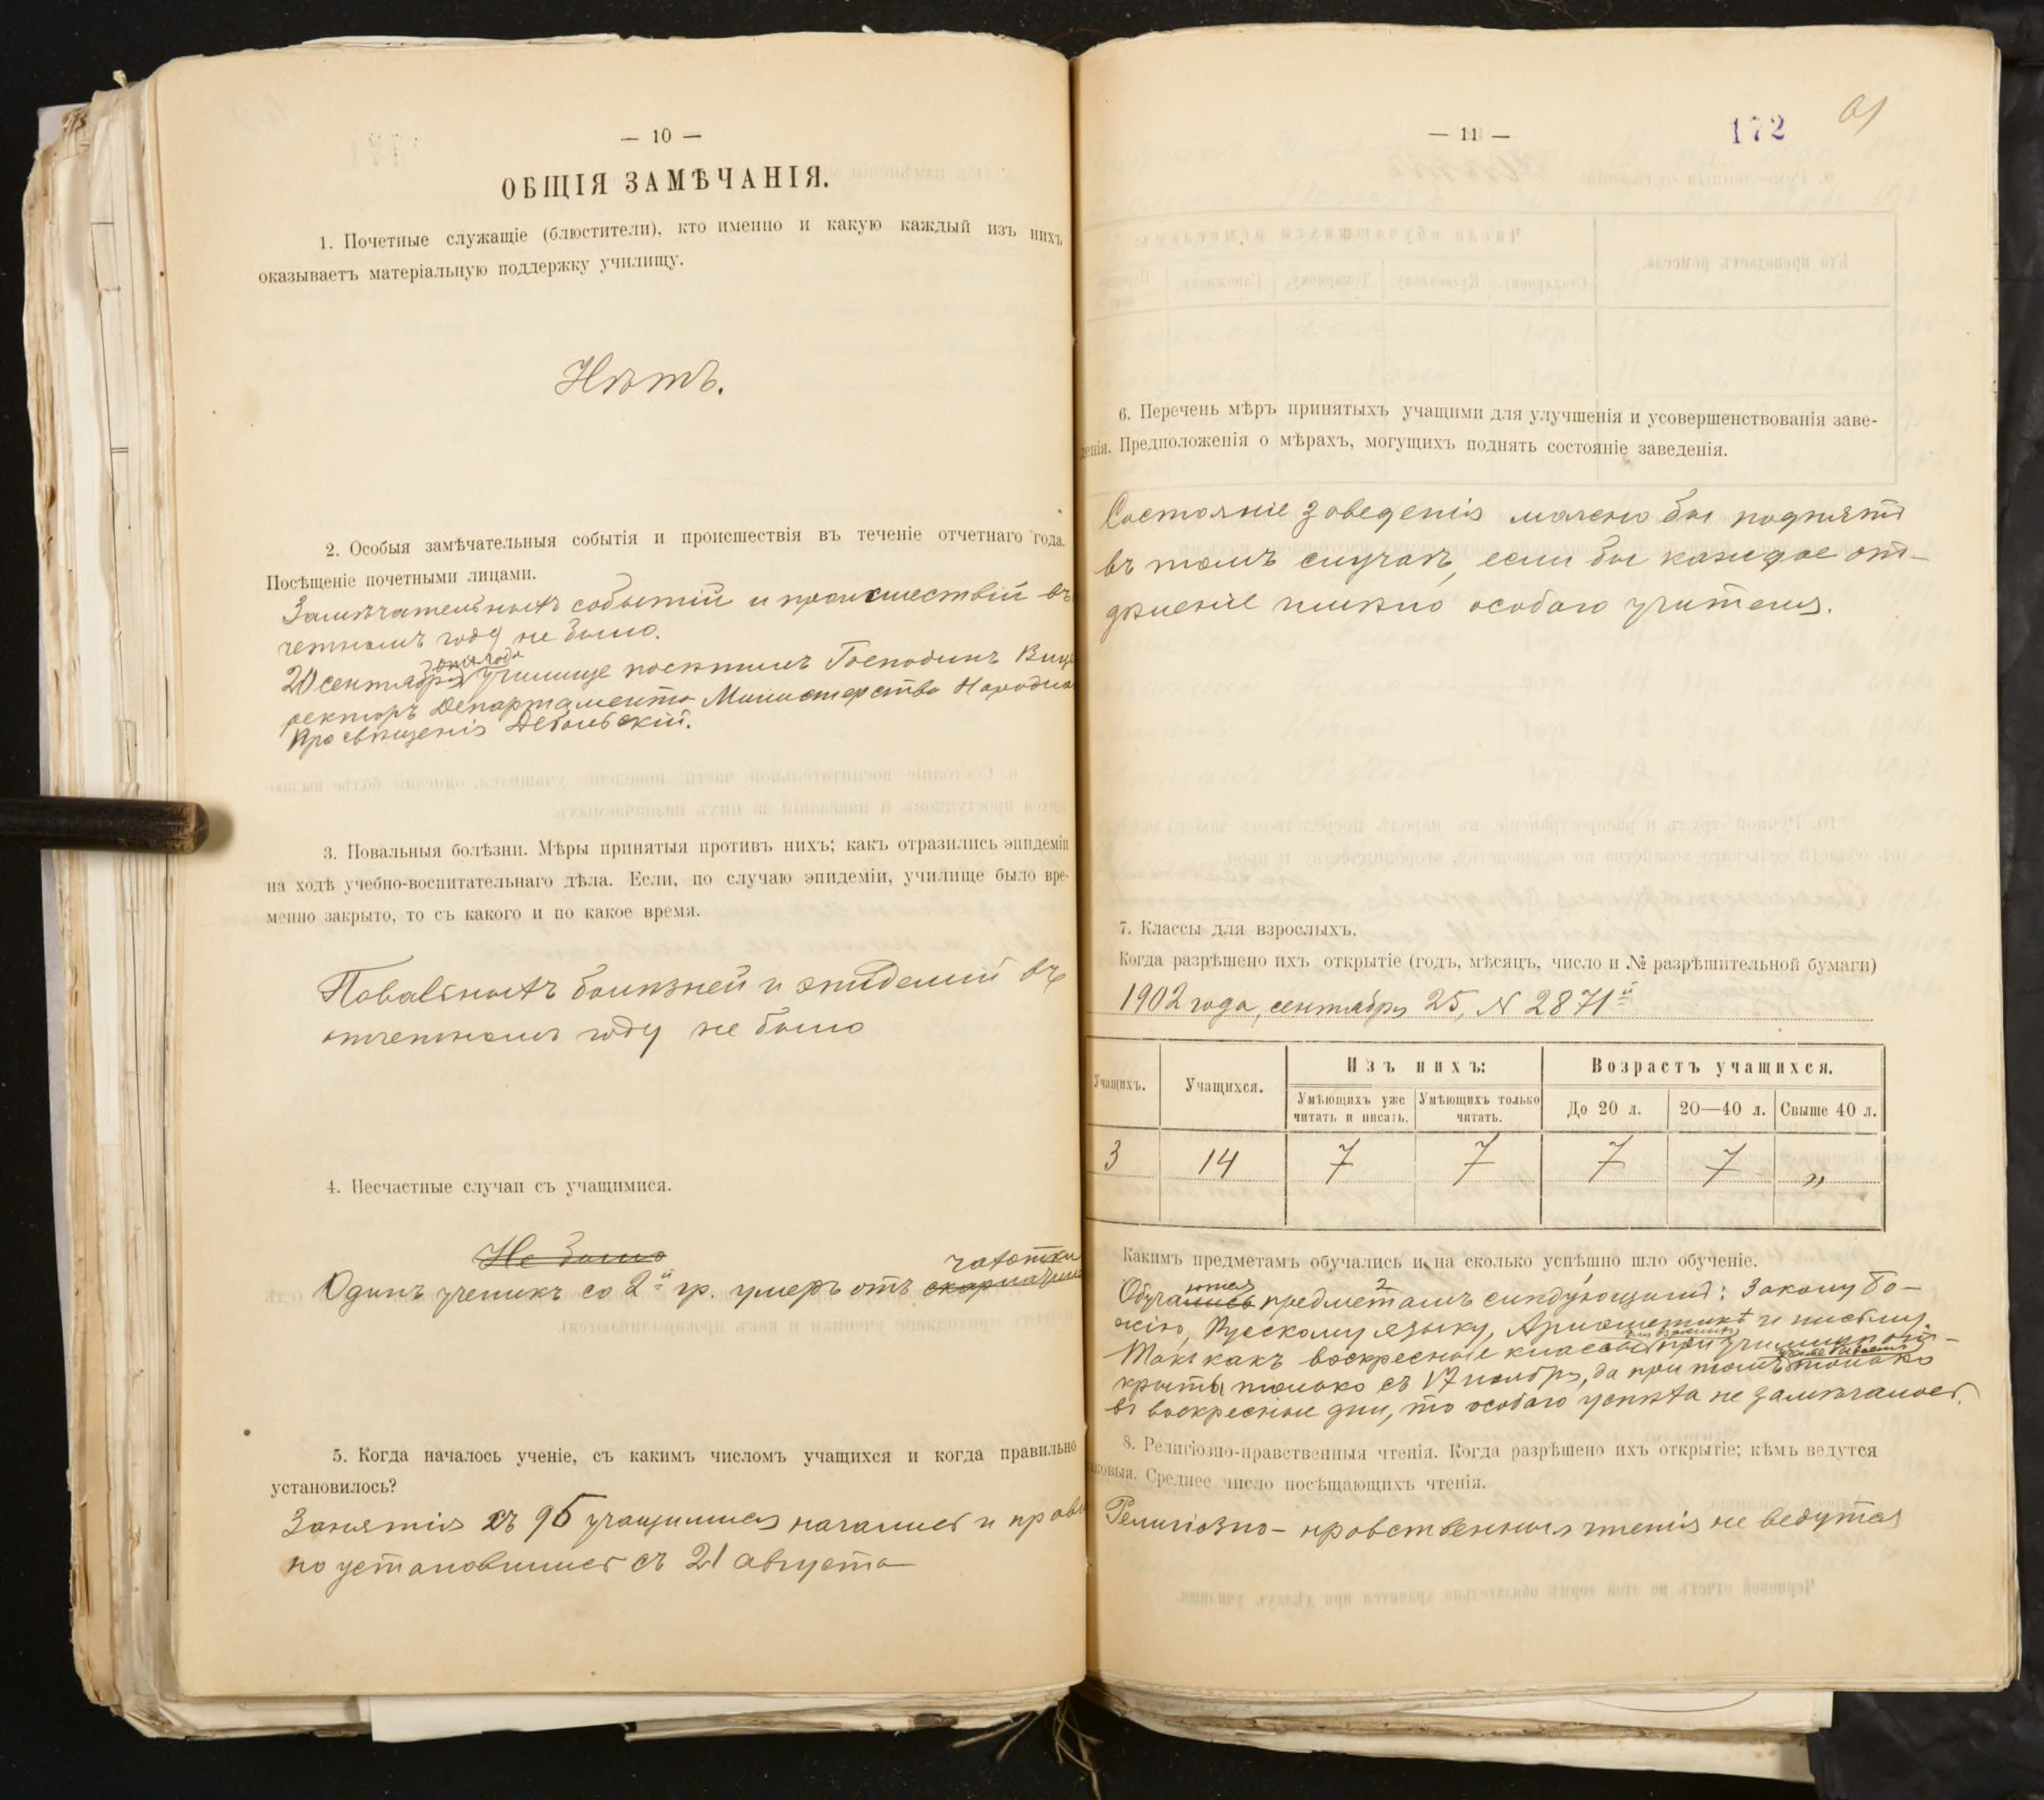 — 10 —
ОБЩІЯ ЗАМѢЧАНІЯ.
1. Почетные служащіе (блюстители), кто именно и какую каждый изъ нихъ
оказываетъ матеріальную поддержку училищу.
Нѣтъ.
2. Особыя замѣчательныя событія и происшествія въ теченіе отчетнаго года.
Посѣщеніе почетными лицами.
Замѣчательныхъ событій и происшествій въ
четномъ году не было.
сего года
20 сентября училище посѣтилъ Господинъ Вице
ректоръ Департамента Министерства Народна
Просвѣщенія Дебольскій.
3. Повальныя болѣзни. Мѣры принятыя противъ нихъ; какъ отразились эпидеміи
на ходѣ учебно-воспитательнаго дѣла. Если, по случаю эпидеміи, училище было вре-
менно закрыто, то съ какого и по какое время.
Повальныхъ болѣзней и эпидемій въ
отчетномъ году не было
4. Несчастные случаи съ учащимися.
Не было
чахотки
Одинъ ученикъ со 2й гр. умеръ отъ скарлатины
5. Когда началось ученіе, съ какимъ числомъ учащихся и когда правильно
установилось?
Занятія съ 95 учащимися начались и прави
но установились съ 21 августа
— 11 —
172
91
6. Перечень мѣръ принятыхъ учащими для улучшенія и усовершенствованія заве-
денія. Предположенія о мѣрахъ, могущихъ поднять состояніе заведенія.
Состояніе заведенія можно бы поднять
въ томъ случаѣ, если бы каждое от-
дѣленіе имѣло особаго учителя.
7. Классы для взрослыхъ.
Когда разрѣшено ихъ открытіе (годъ, мѣсяцъ, число и № разрѣшительной бумаги)
1902 года, сентября 25, N 2871й
Учащихъ. Учащихся. Изъ нихъ: Возрастъ учащихся.
Умѣющихъ уже читать и писать. Умѣющихъ только читать. До 20 л. 20—40 л. Свыше 40 л.
3 14 7 7 7 7 „
Какимъ предметамъ обучались и на сколько успѣшно шло обученіе.
ются
Обучались предметамъ слѣдующимъ: Закону Бо-
жію, Русскому языку, Ариѳметикѣ и письму.
для взрослыхъ
Такъ какъ воскресные классы при училищѣ от-
крыты только съ 17 ноября, да при томъ только
въ воскресные дни, то особаго успѣха не замѣчалось.
8. Религіозно-нравственныя чтенія. Когда разрѣшено ихъ открытіе; кѣмъ ведутся
таковыя. Среднее число посѣщающихъ чтенія.
Религіозно-нравственныя чтенія не ведутся